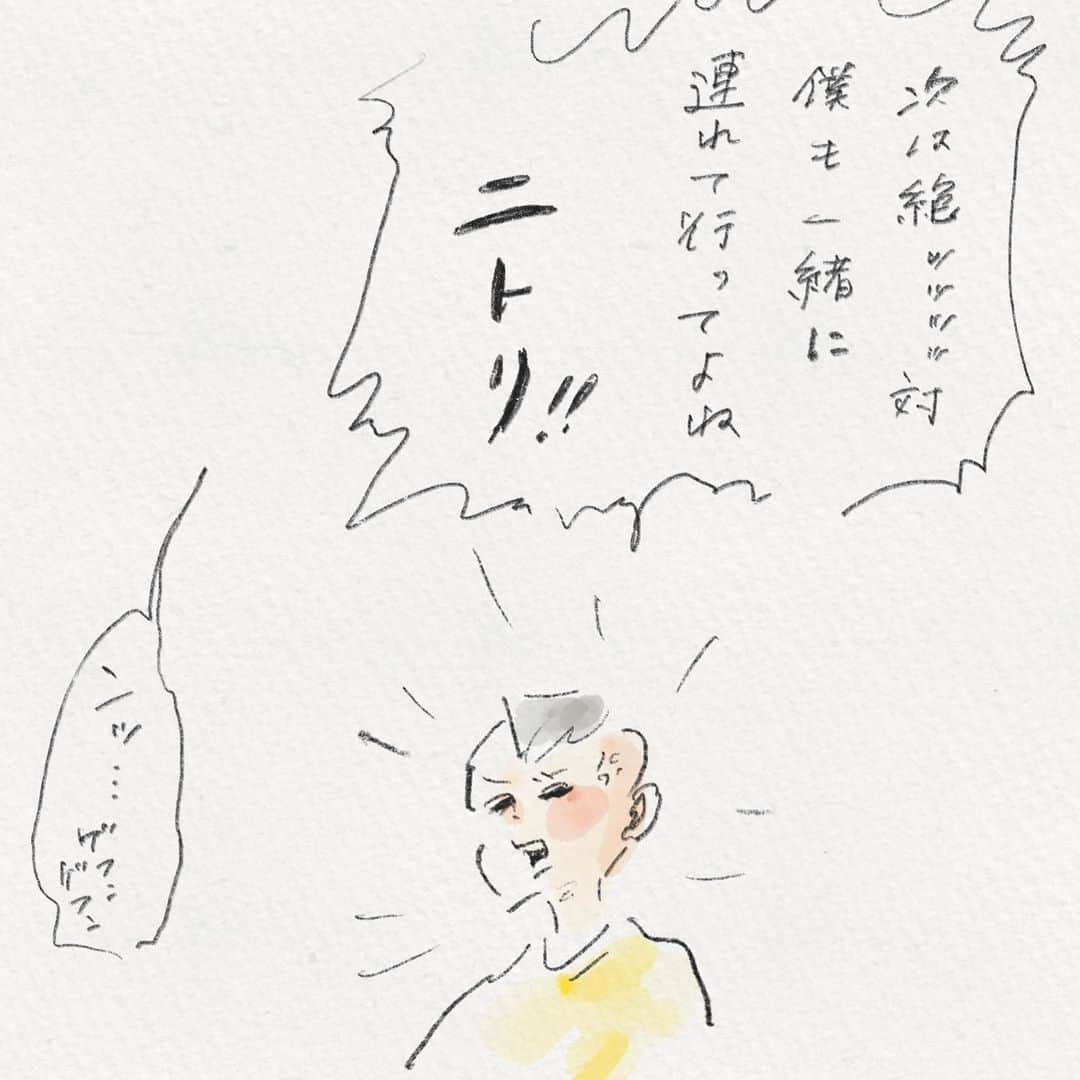 次は絶ッッッッ対
僕も一緒に
連れて行ってよね
ニトリ!!
ンッ…
ゲフン
ゲフン